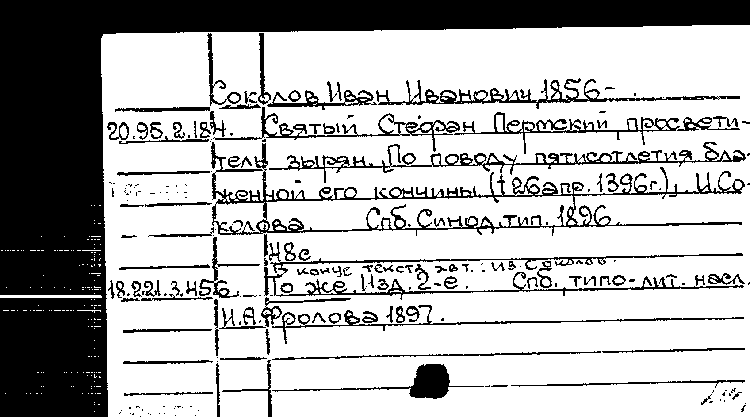 Соколов, Иван Иванович, 1856-
20.95.2.184. Святый Стефан Пермский, просвети-
тель зырян. [По поводу пятисотлетия бла-
женной его кончины. (†26 апр. 1396г.)], И.Со-
колова. Спб. Синод. тип., 1896.
48с.
В конце текста авт.: Ив. Соколов.
18.221.3.456. То же. Изд. 2-е. Спб., типо-лит. насл.
И.А.Фролова, 1897.